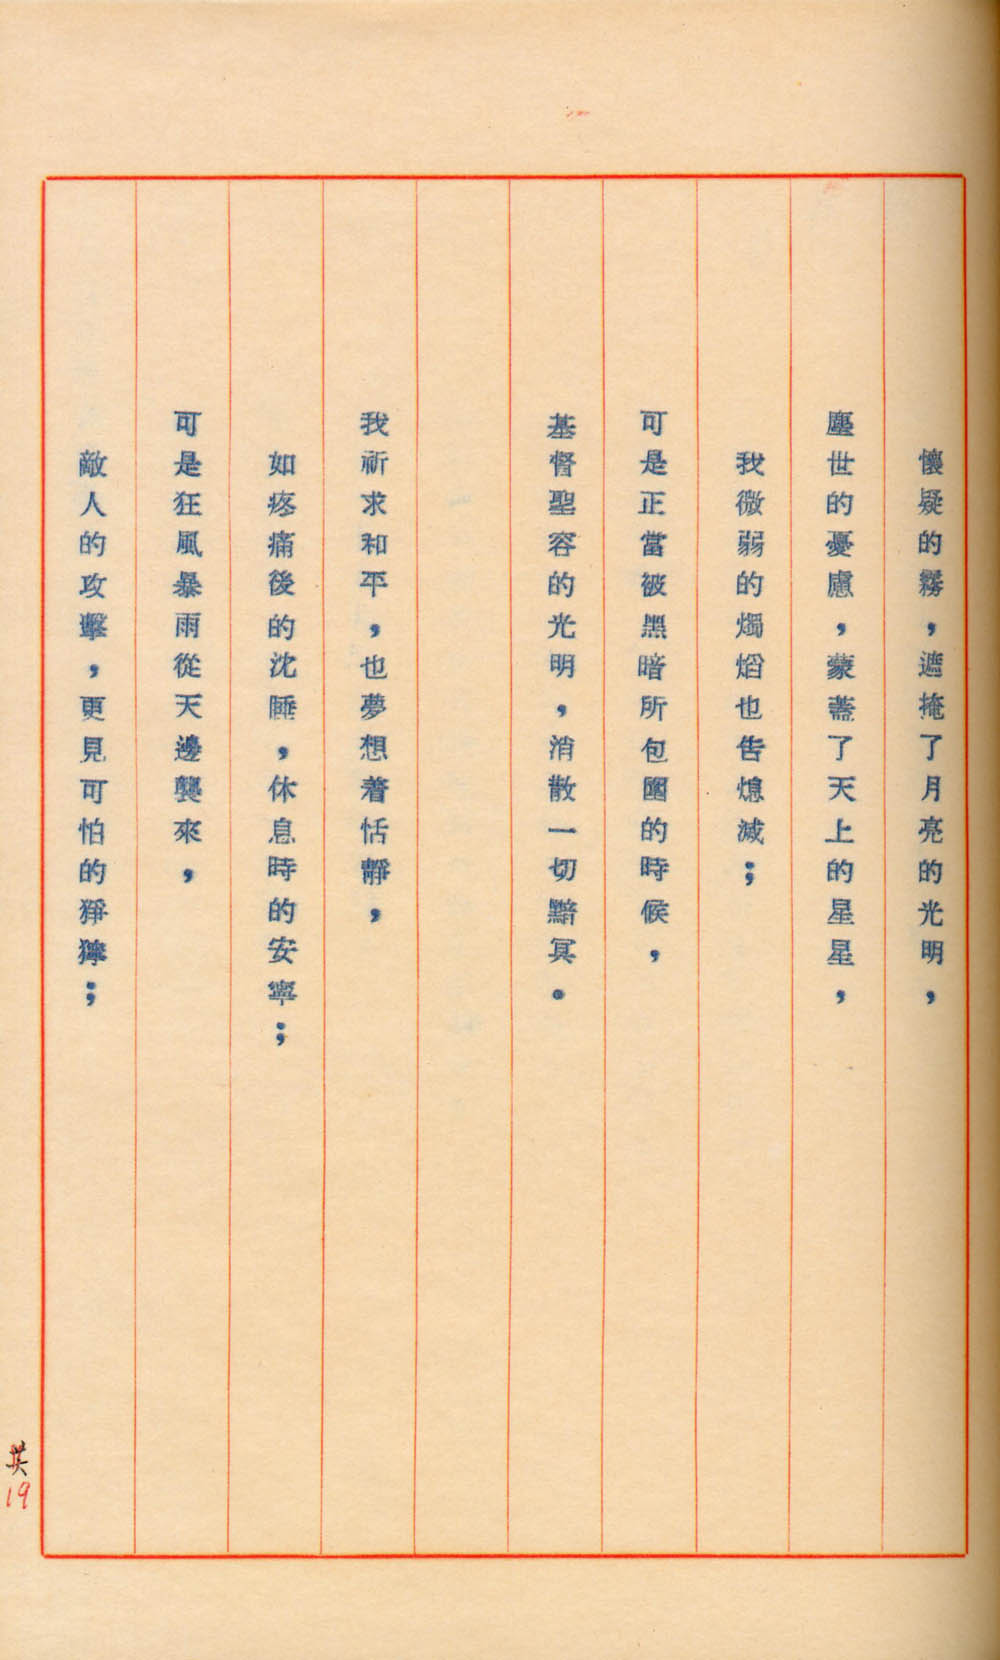 懷疑的霧，遮掩了月亮的光明，
塵世的憂慮，蒙蓋了天上的星星，
我微弱的燭焰也告熄滅；
可是正當被黑暗所包圍的時候，
基督聖容的光明，消散一切黯冥。
我祈求和平，也夢想着恬靜，
如疼痛後的沈睡，休息時的安寧；
可是狂風暴雨從天邊襲來，
敵人的攻擊，更見可怕的猙獰；
英
19